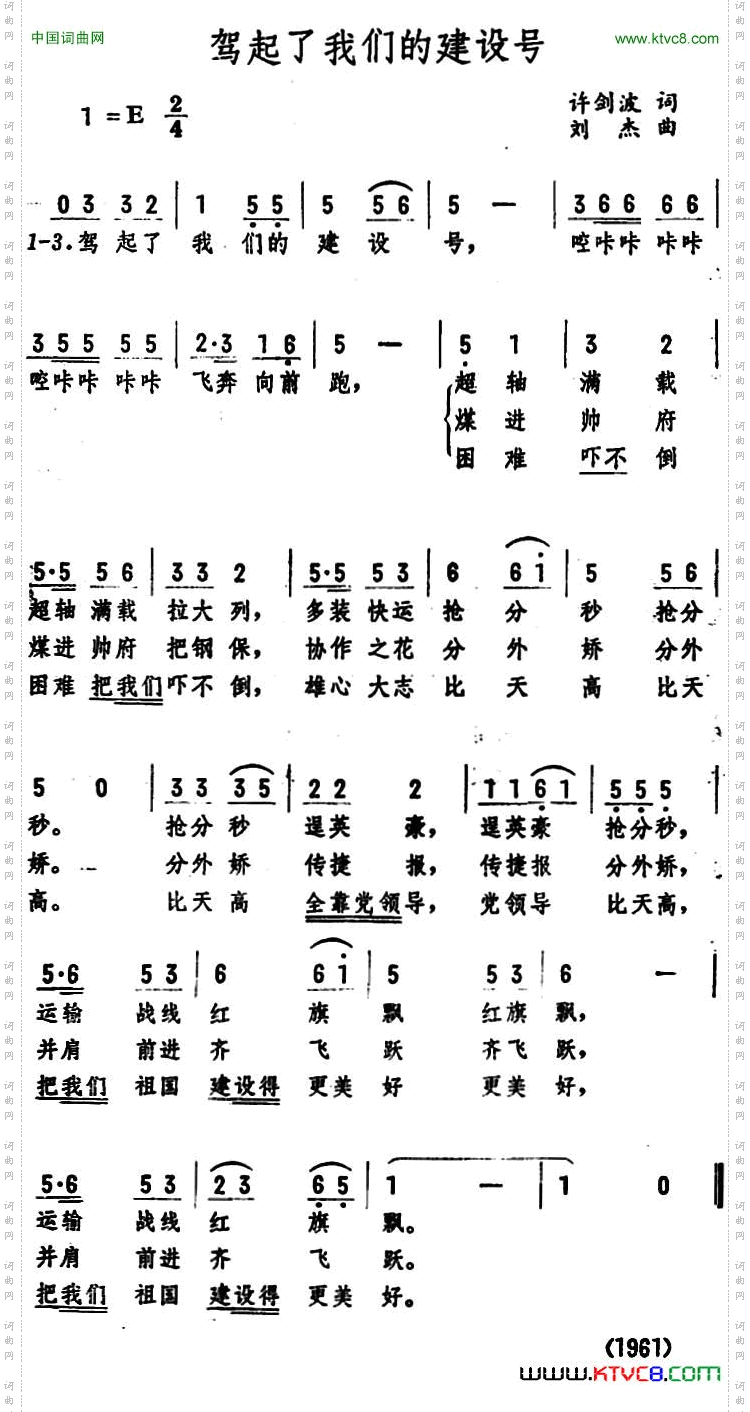 中国词曲网 驾起了我们的建设号 www.ktvc8.com
1=E 2/4 许剑波 词
刘杰 曲
0 3 3 2 | 1 5 5 | 5 5 6 | 5 — | 3 6 6 6 6 |
1-3.驾 起了 我 们的 建 设 号, 啌咔咔 咔咔
3 5 5 5 5 | 2·3 1 6 | 5 — | 5 1 3 2 |
啌咔咔 咔咔 飞奔 向前 跑, 超 轴 满 载
煤 进 帅 府
困 难 吓不 倒
5·5 5 6 | 3 3 2 | 5·5 5 3 | 6 6 i | 5 5 6 |
超轴 满载 拉大 列, 多装 快运 抢 分 秒 抢分
煤进 帅府 把钢 保, 协作 之花 分 外 娇 分外
困难 把我们 吓不 倒, 雄心 大志 比 天 高 比天
5 0 | 3 3 3 5 | 2 2 2 | 1 1 6 1 | 5 5 5 |
秒。 抢分 秒 逞英 豪, 逞英豪 抢分秒,
娇。 分外 娇 传捷 报, 传捷报 分外娇,
高。 比天 高 全靠党领导, 党领导 比天高,
5·6 5 3 | 6 6 i | 5 5 3 | 6 — |
运输 战线 红 旗 飘 红旗 飘,
并肩 前进 齐 飞 跃 齐飞 跃,
把我们 祖国 建设得 更美 好 更美 好,
5·6 5 3 | 2 3 6 5 | 1 — | 1 0 ‖
运输 战线 红 旗 飘。
并肩 前进 齐 飞 跃。
把我们 祖国 建设得 更美 好。
(1961)
www.KTVC8.com